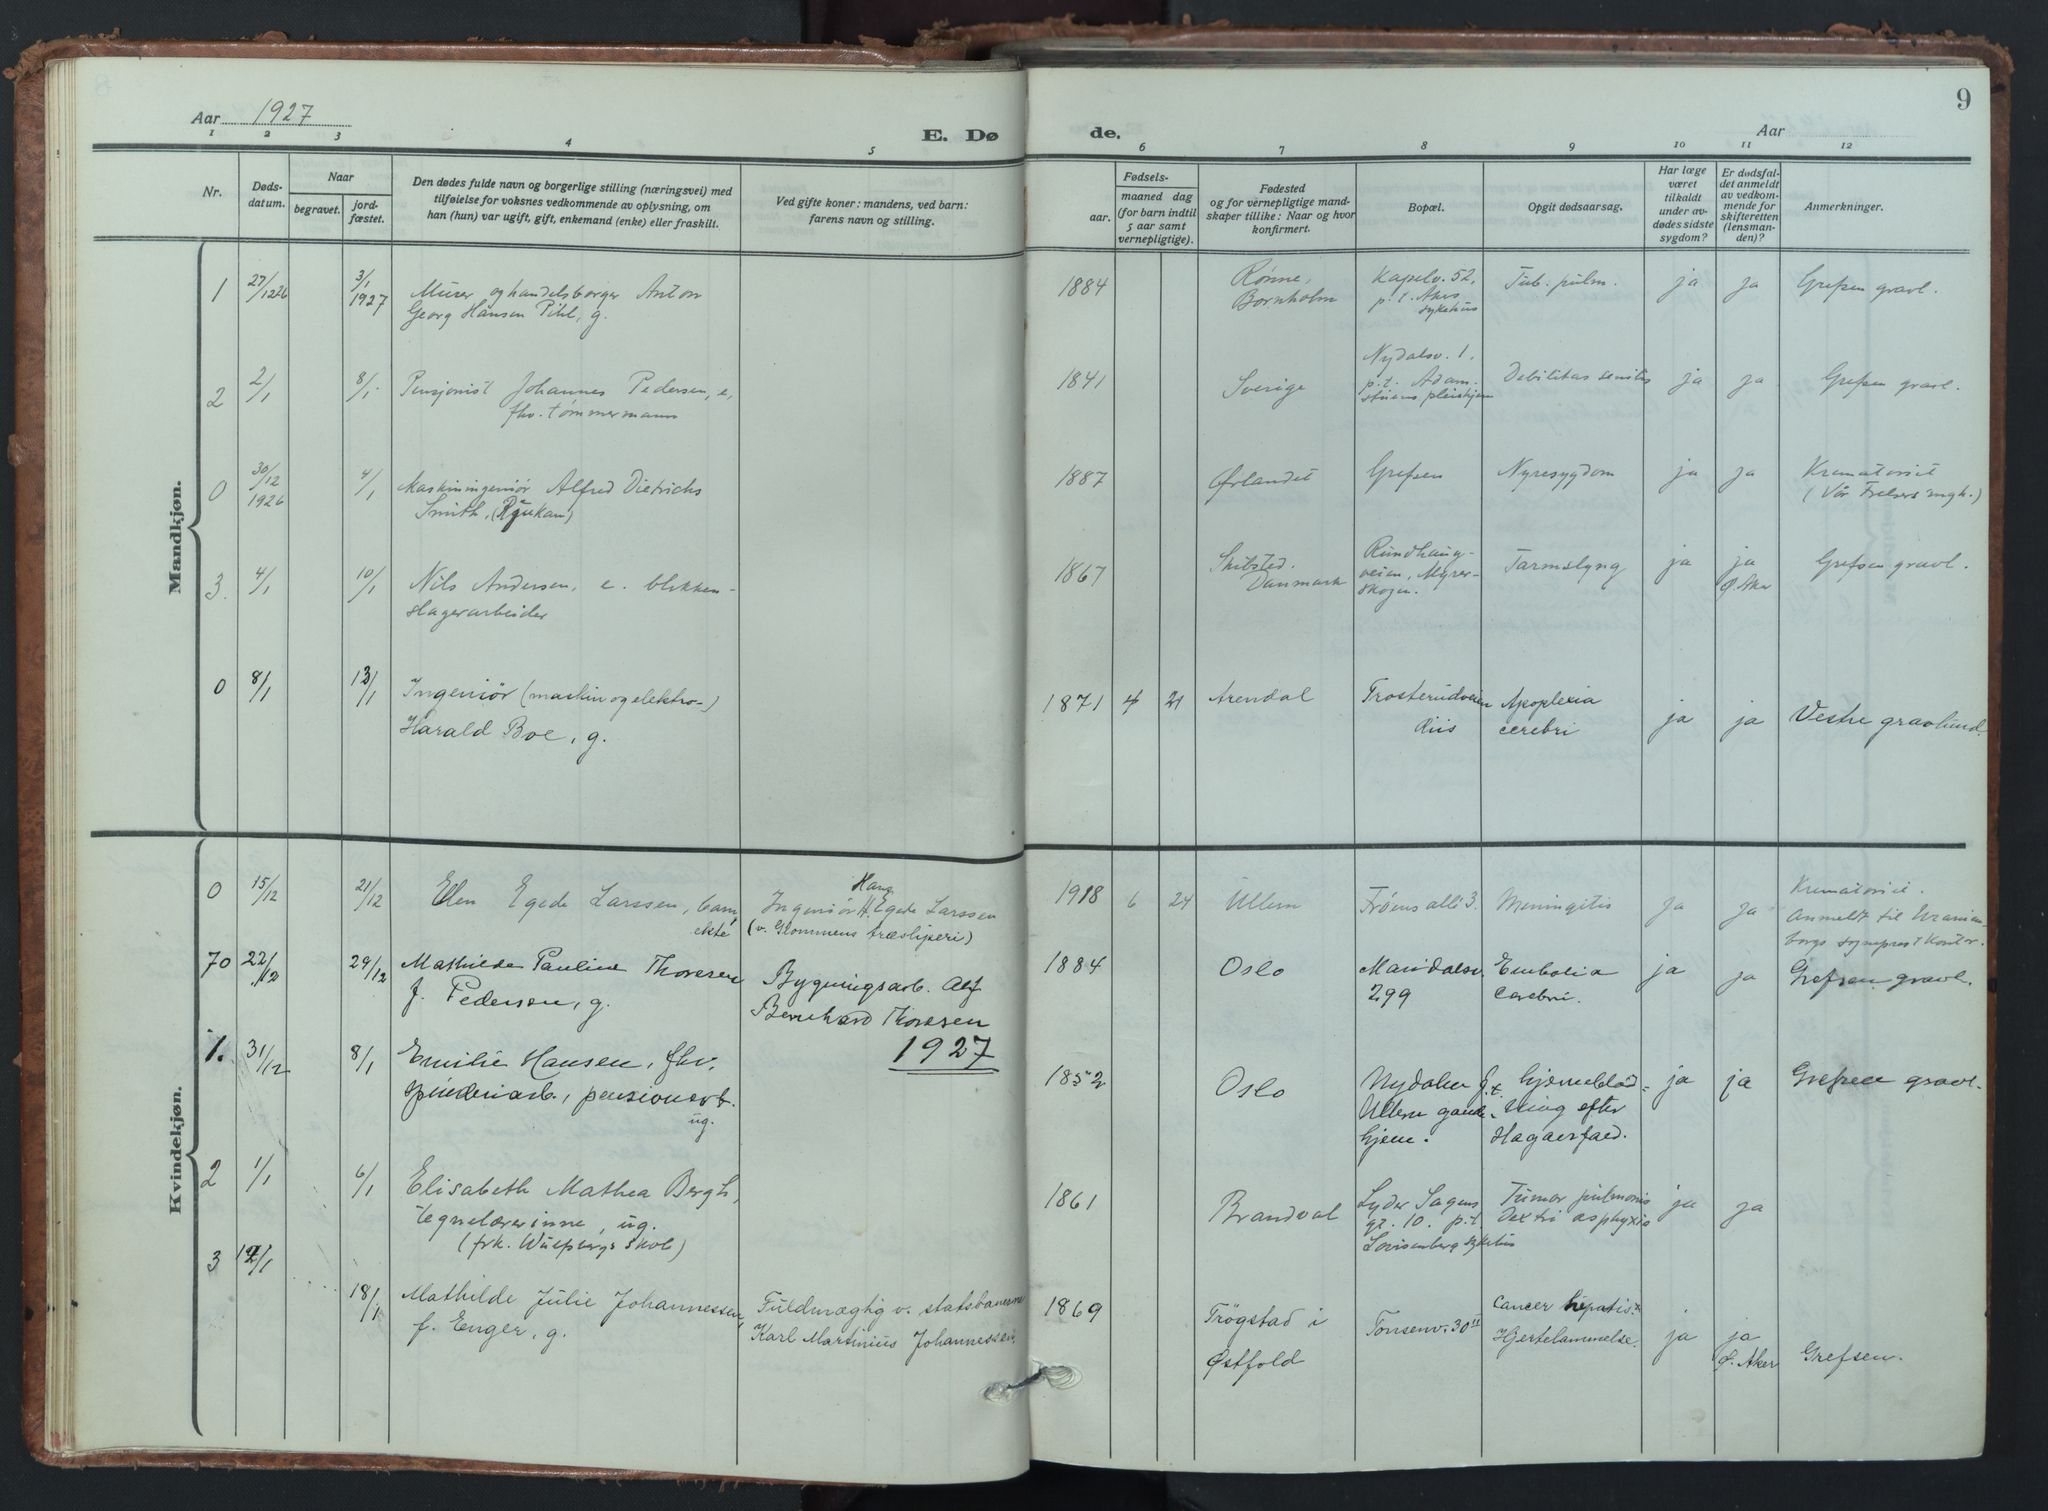 Aar 1927
E. Døde.
Aar
9
1 2 3 4 5 6 7 8 9 10 11 12
Nr.
Døds-
datum.
Naar
begravet.
jord-
fæstet.
Den dødes fulde navn og borgerlige stilling (næringsvei) med
tilføielse for voksnes vedkommende av oplysning, om
han (hun) var ugift, gift, enkemand (enke) eller fraskilt.
Ved gifte koner: mandens, ved barn:
farens navn og stilling.
Fødsels-
aar.
maaned dag
(for barn indtil
5 aar samt
vernepligtige).
Fødested
og for vernepligtige mand-
skaper tillike: Naar og hvor
konfirmert.
Bopæl.
Opgit dødsaarsag.
Har læge
været
tilkaldt
under av-
dødes sidste
sygdom?
Er dødsfal-
det anmeldt
av vedkom-
mende for
skifteretten
(lensman-
den)?
Anmerkninger.
Mandkjøn.
1 27/12 26 3/1 1927
Murer og handelsborger Anton
Georg Hansen Pihl, g.
1884
Rønne,
Bornholm
Kapelv. 52,
p.t. Akers
sykehus
Tub. pulm.
ja ja Grefsen gravl.
2 2/1 8/1
Pensjonist Johannes Pedersen, e,
fhv. tømmermann
1841
Sverige
Nydalsv. 1.
p.t. Adam-
stuens pleiehjem
Debilitas senilis
ja ja Grefsen gravl.
0 30/12 1926 4/1
Maskiningeniør Alfred Dietrichs
Smith, (Rjukan)
1887
Ørlandet
Grefsen
Nyresygdom
ja ja Krematoriet
(Vår Frelsers )
3. 4/1 10/1
Nils Andersen, e. blikken-
slagerarbeider
1867
Skibsted.
Danmark
Rundhaug-
veien, Myrer-
skogen.
Tarmslyng
ja ja
Ø. Aker
Grefsen gravl.
0 8/1 13/1
Ingeniør (maskin og elektro-)
Harald Boe, g.
1871 4 21
Arendal
Trosterudveien
Riis
Apoplexia
cerebri
ja ja Vestre gravlund.
Kvindekjøn.
0 15/12 21/12
Ellen Egede Larssen, barn,
ekte
Hans
Ingeniør H. Egede Larssen
(v. Glommens træsliperi)
1918 6 24
Ullern
Frøens allé 3.
Meningitis
ja ja
Krematoriet.
Anmeldt til Uranien-
borgs sogneprest kontor.
70 22/12 29/12
Mathilde Pauline Thoresen
f. Pedersen, g.
Bygningsarb. Alf
Bernhard Thoresen
1884
Oslo
Maridalsv.
299
Embolia
Cerebri.
ja ja Grefsen gravl.
1927
1. 31/12 8/1
Emilie Hansen, fhv.
spinderiarb., pensionert.
ug.
1852
Oslo
Nydalen f.t.
Ullern gamle-
hjem.
Hjerneblød-
ning efter
Hagaerfaed.
ja ja Grefsen gravl.
2 1/1 6/1
Elisabeth Mathea Bergh,
tegnelærerinne, ug.
(frk. Wulfsbergs skole)
1861
Brandval
Lyder Sagens
gt. 10. p.t.
Lovisenberg sykehus
Tumor pulmonis
dextri asphyxia
ja ja
3 12/1 18/1
Mathilde Julie Johannessen,
f. Enger, g.
Fuldmægtig v. statsbanerne
Karl Martinius Johannessen.
1869
Trøgstad i
Østfold
Tonsenv. 30 II
Cancer hepatis.
Hjertelammelse.
ja ja
Ø. Aker
Grefsen.